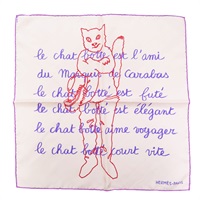 le chat botté est l'ami
du Marquis de Carabas
le chat botté est futé
le chat botté est élégant
le chat botté aime voyager
le chat botté court vite
HERMÈS-PARIS